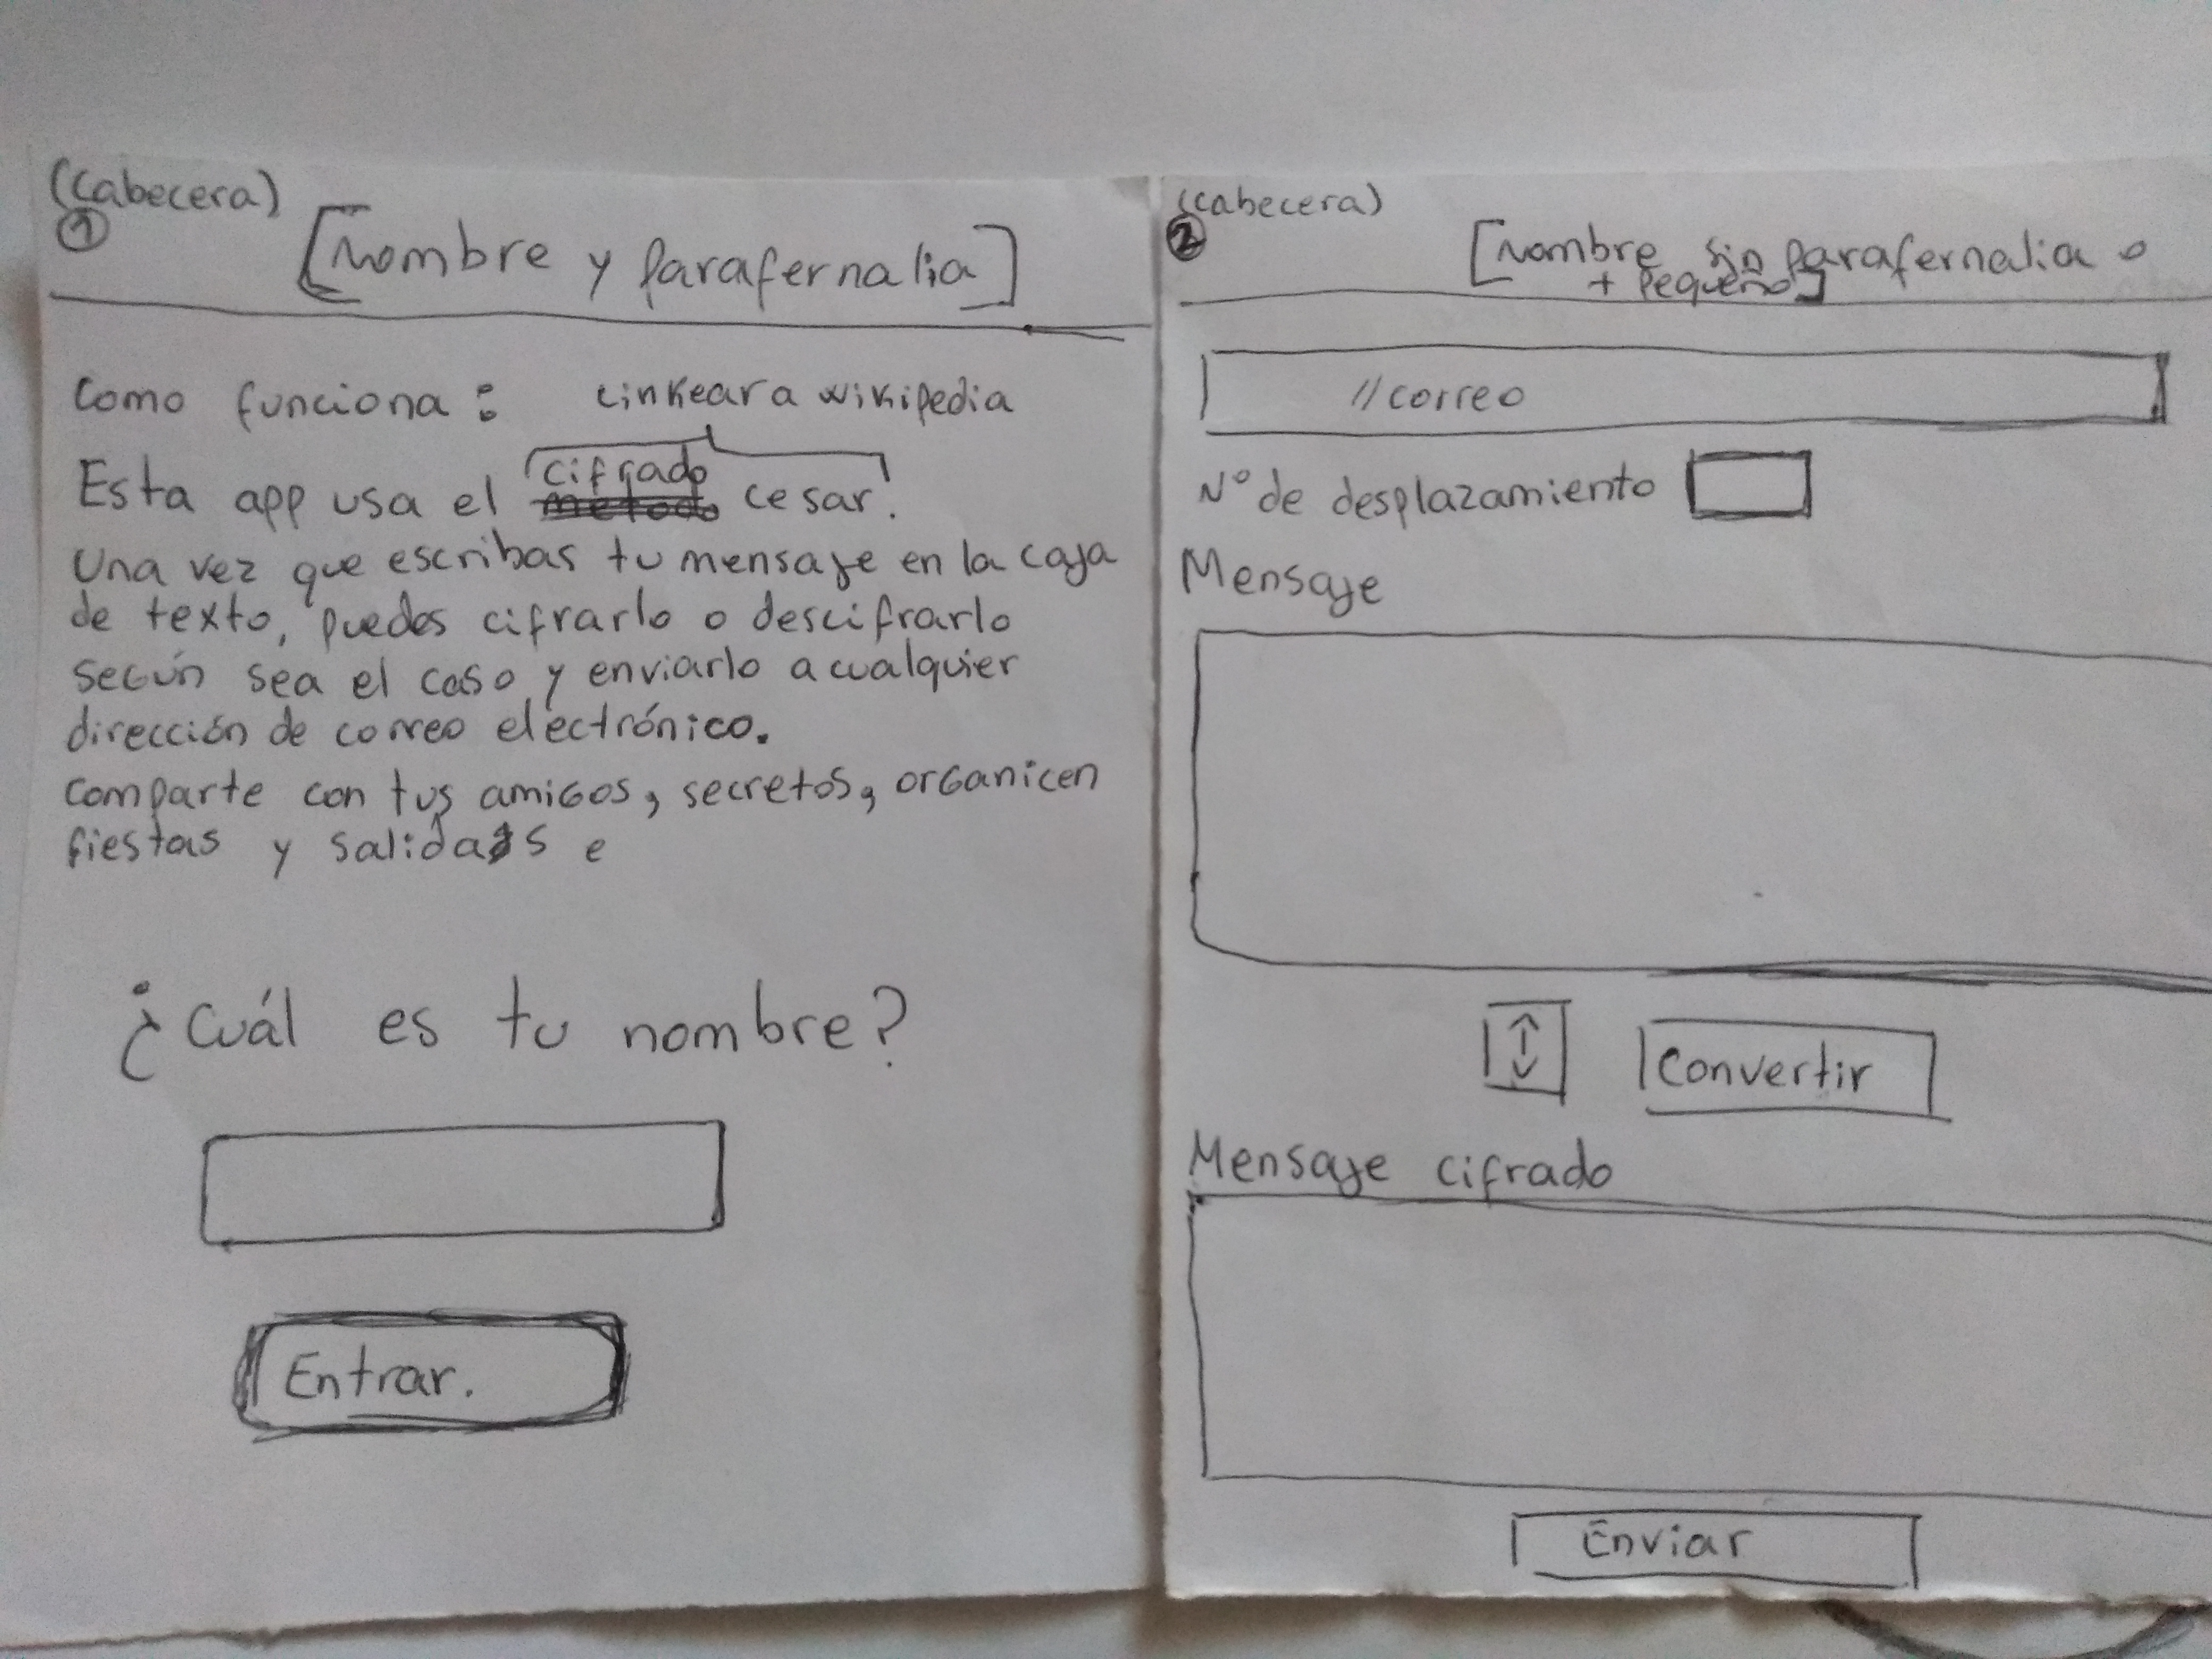 (Cabecera)
①
[Nombre y parafernalia]
Como funciona: Linkear a wikipedia
cifrado
Esta app usa el metodo cesar.
Una vez que escribas tu mensaje en la caja
de texto, puedes cifrarlo o descifrarlo
según sea el caso y enviarlo a cualquier
dirección de correo electrónico.
comparte con tus amigos, secretos, organicen
fiestas y salidas e
¿Cuál es tu nombre?
Entrar.
(cabecera)
②
[Nombre sin parafernalia o
+ pequeño]
//correo
N° de desplazamiento
Mensaje
↕ Convertir
Mensaje cifrado
Enviar